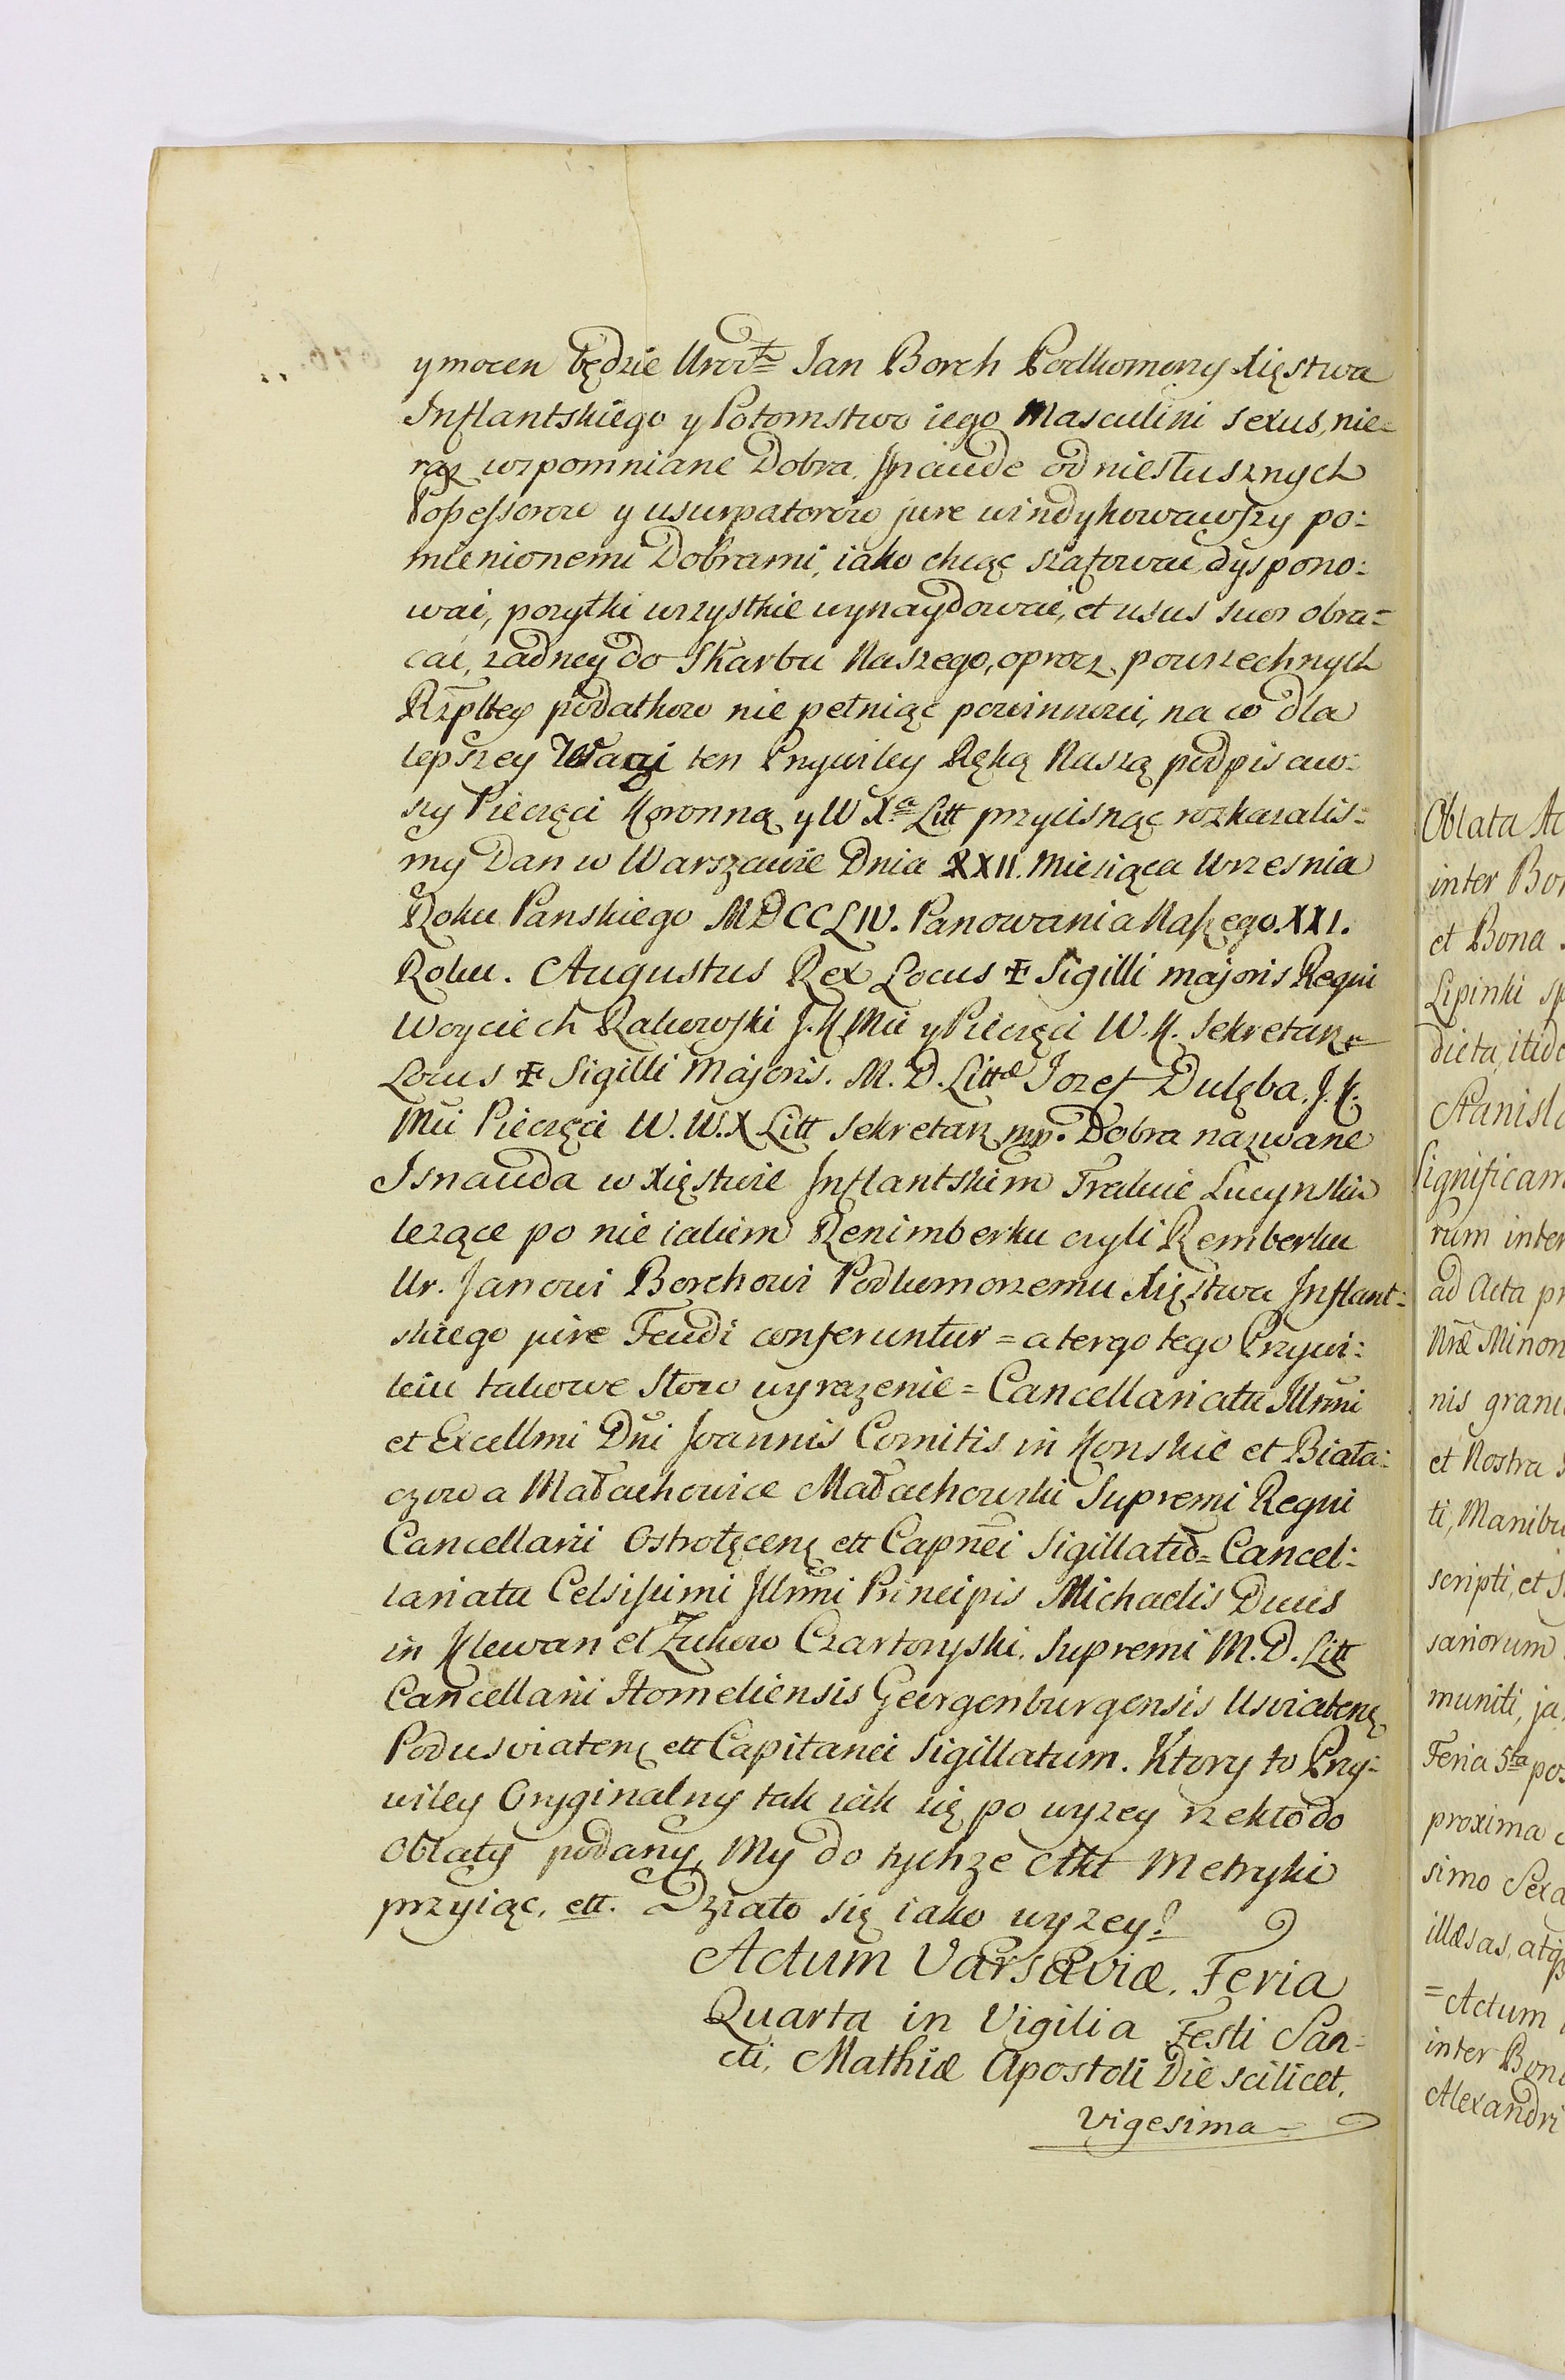 y mocen będzie Urodz Jan Borch Podkomorzy Xięstwa
Inflantskiego y Potomstwo iego Masculini sexus, nie-
raz wspomniane Dobra Isnaude od niesłusznych
Possessorow y usurpatorow jure windykowawszy po-
mienionemi Dobrami, iako chcąc szafować, dyspono-
wać, pozytki wszystkie wynaydować, et usus suos obra-
cać, zadney do Skarbu Naszego, oprocz powszechnych
Rzpltey podatkow nie pełniąc powinnosci, na co dla
lepszey Wagi ten Przywiley Ręką Naszą podpisaw-
szy Pieczęci Koronną y W Xa Litt przycisnąc rozkazalis-
my Dan w Warszawie Dnia XXII. Miesiąca Wrzesnia
Roku Panskiego MDCCLIV. Panowania Naszego. XXI.
Roku. Augustus Rex Locus ✠ Sigilli majoris Regni
Woyciech Rakowski J.K Mci y Pieczęci W.K. Sekretarz
Locus ✠ Sigilli Majoris. M. D. Littæ Jozef Dulęba. J.K.
Mci Pieczęci W.W.X Litt Sekretarz mp. Dobra nazwane
Isnauda w Xięstwie Inflantskim Trakcie Lucynskim
lezące po nie iakim Renimberku czyli Remberku
Ur. Janowi Borchowi Podkomorzemu Xięstwa Inflant-
skiego jure Feudi conferuntur = a tergo tego Przywi-
leiu takowe Słow wyrazenie = Cancellariatu Illrmi
et Excellmi Dni Joannis Comitis in Konskie et Biała-
czow a Małachowice Małachowski Supremi Regni
Cancellarii Ostrołęcen ett Capnei Sigillatio = Cancel-
lariatu Celsissimi Illrmi Principis Michaelis Ducis
in Klewan et Zukow Czartoryski. Supremi M. D. Litt
Cancellarii Homeliensis Georgenburgensis Usviaten
Podusviaten ett Capitanei Sigillatum. Ktory to Przy-
wiley Oryginalny tak iak się po wyzey rzekło do
Oblaty podany, My do tychze Akt Metryki
przyiąc, ett. Działo się iako wyzey.
Actum Varsaviæ. Feria
Quarta in Vigilia Festi San-
cti, Mathiæ Apostoli Die scilicet.
Vigesima =
Oblata
inter
et Bona
Lipinki
dicta,
rum inter
ad Acta
nis
et Nostra
ti,
scripti, et
sariorum
muniti,
Feria 5ta
proxima
simo
illæsas,
= Actum
inter
Alexandri